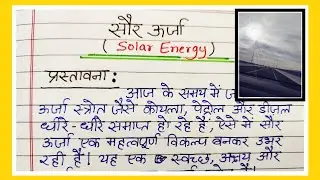 सौर ऊर्जा
(Solar Energy)
प्रस्तावना:
आज के समय में
ऊर्जा स्त्रोत जैसे कोयला, पेट्रोल और डीजल
धीरे-धीरे समाप्त हो रहे हैं, ऐसे में सौर
ऊर्जा एक महत्वपूर्ण विकल्प बनकर उभर
रही है। यह एक स्वच्छ, अक्षय और